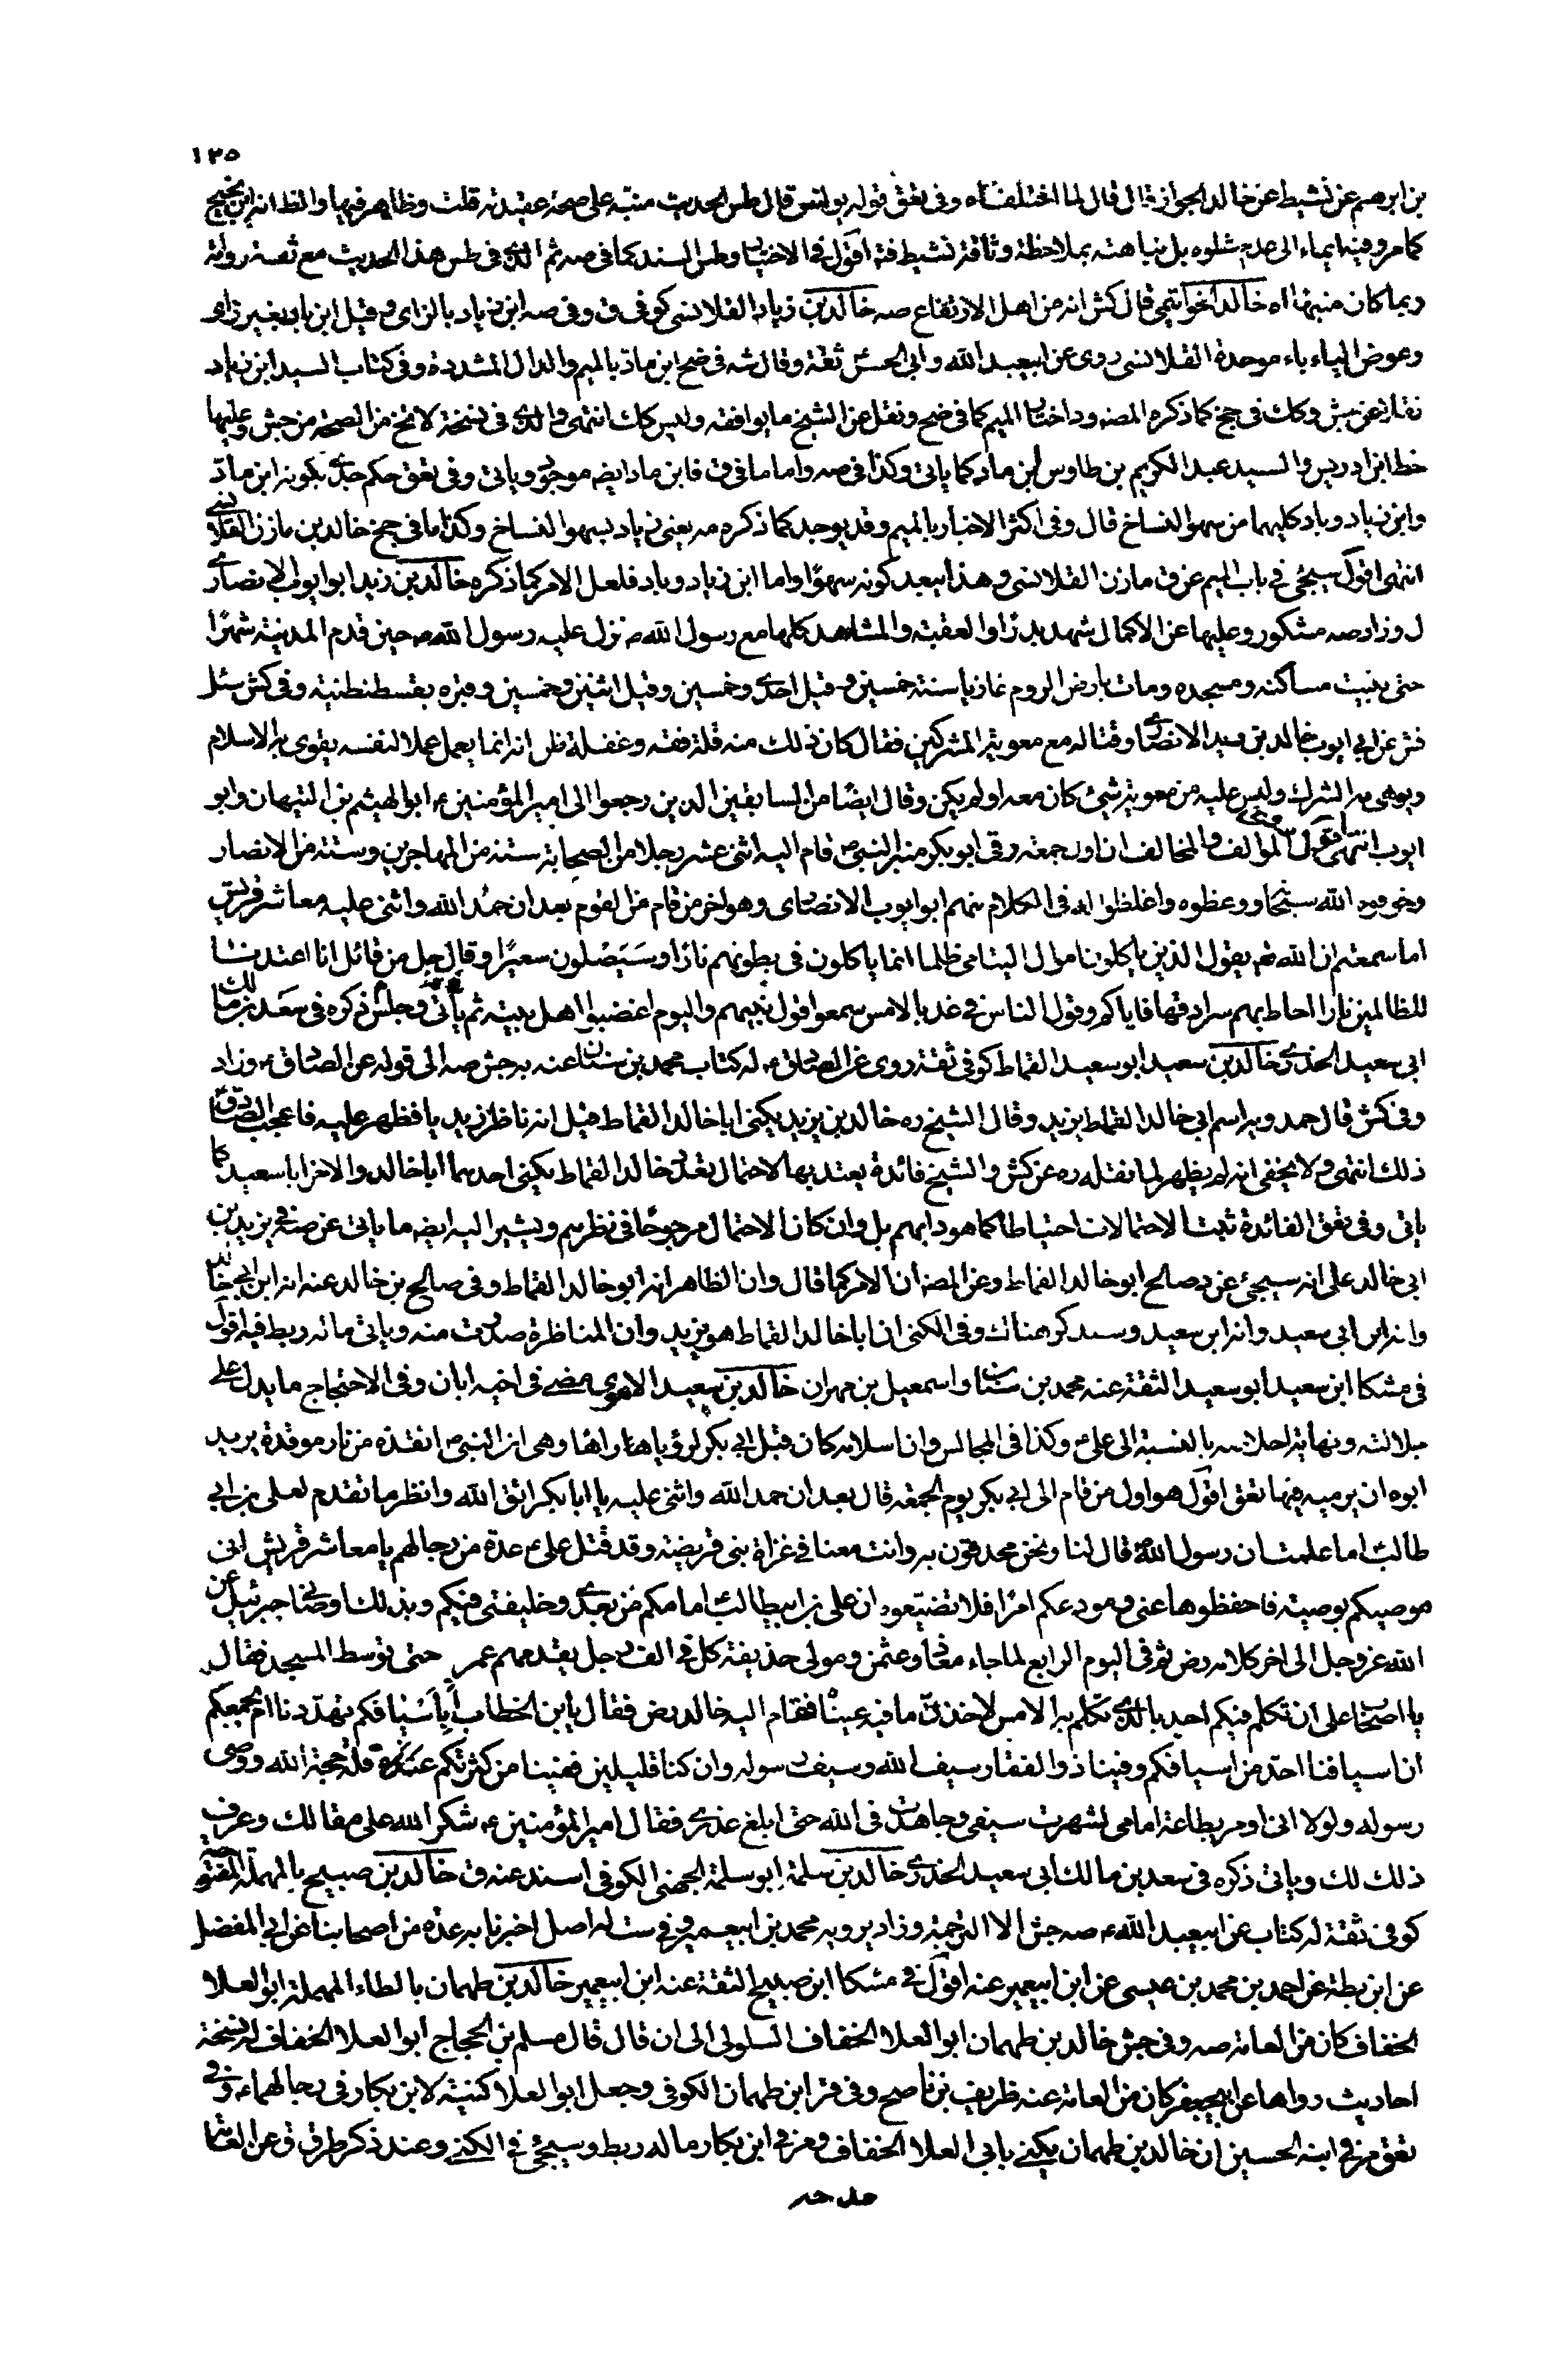 ١٢٥
بن ابرهيم عن نشيط عن خالد الجواز قال قال لما اختلف وفى تعق قوله بو لتس قال طس الحديث منبه على صحة عقيدته قلت وظاهر فيها والظ انه ابن نجيح
كما مر وفيه ايماء الى عدم غلوه بل نباهته بملاحظة وثاقة نشيط فتم اقول في الاختيار وطس السند كما في صه ثم الذى في طس هذا الحديث مع قصة رواته
ربما كان منبها اه خالد الخواتيمى قال كش انه من اهل الارتفاع صه خالد بن زياد القلانسى كوفى ق وفى صه ابن زياد بالزاى وقيل ابن باد بغير زاء
وعوض الياء باء موحدة القلانسى روى عن ابيعبد الله وابى الحسن ثقة وقال شه فى ضح ابن ماد بالميم والدال المشددة وفى كتاب السيد ابن زياد
نقلا عن جش وكك فى جخ كما ذكره المصنف و د اختار الميم كما فى ضح ونقل عن الشيخ ما يوافقه وليس كك انتهى والذى فى نسخة لا تخ من الصحة من جش وعليها
خط ابن ادريس والسيد عبد الكريم بن طاوس ابن ماد كما ياتى وكذا فى صه واما ما فى ق فابن ماد ايضه موجود وياتى وفى تعق حكم جدى بكونه ابن مادّ
وابن زياد وباد كليهما من سهو النساخ قال وفى اكثر الاخبار بالميم وقد يوجد كما ذكره صه يعنى زياد بسهو النساخ وكذا ما فى جخ خالد بن مازن القلانسى
انتهى اقول سيجئ فى باب الميم عن ق مازن القلانسى وهذا يبعد كونه سهوا واما ابن زياد وباد فلعل الامر كما ذكره خالد بن زيد ابو ايوب الانصارى
ل وزاد صه مشكور وعليها عن الاكمال شهد بدرا والعقبة والمشاهد كلها مع رسول الله ص نزل عليه رسول الله ص حين قدم المدينة شهرا
حتى بنيت مساكنه ومسجده ومات بارض الروم غازيا سنة خمسين وقيل احدى وخمسين وقيل اثنين وخمسين وقبره بقسطنطنية وفى كش سئل
فش عن ابى ايوب خالد بن زيد الانصارى وقتاله مع معوية المشركين فقال كان ذلك منه قلة فقه وغفلة ظن انه انما يعمل عملا لنفسه يقوى به الاسلام
ويوهى به الشرك وليس عليه من معوية شئ كان معه او لم يكن وقال ايضا من السابقين الذين رجعوا الى امير المؤمنين ع ابو الهيثم بن التيهان وابو
ايوب انتهى اقول روى المؤالف والمخالف ان اول جمعة رقى ابو بكر منبر النبى ص قام اليه اثنى عشر رجلا من الصحابة ستة من المهاجرين وستة من الانصار
وخوفوه الله سبحانه ووعظوه واغلظوا له فى الكلام منهم ابو ايوب الانصارى وهو اخر من قام من القوم بعد ان حمد الله واثنى عليه معاشر قريش
اما سمعتم ان الله تع يقول الذين ياكلون اموال اليتامى ظلما انما ياكلون فى بطونهم نارا وسَيَصْلون سعيرا وقال جل من قائل انا اعتدنا
للظالمين نارا احاط بهم سرادقها فاياكم وقول الناس فى غد بالامس سمعوا قول نبيهم واليوم اغضبوا اهل بيته ثم ياتى وجلس ذكره فى سعد بن مالك
ابى سعيد الخدرى خالد بن سعيد ابو سعيد القماط كوفى ثقة روى عن الصادق ع له كتاب محمد بن سنان عنه به جش صه الى قوله عن الصادق ع وزاد
وفى كش قال حمدويه اسم ابى خالد القماط يزيد وقال الشيخ ره خالد بن يزيد يكنى ابا خالد القماط قيل انه ناظر زيديا فظهر عليه فاعجب الصادق ع
ذلك انتهى ولا يخفى انه لم يظهر لما نقله ره عن كش والشيخ فائدة يعتد بها لاحتمال تعدد خالد القماط يكنى احدهما ابا خالد والاخر ابا سعيد كما
ياتى وفى تعق الفائدة ثبت الاحتمالات احتياطا كما هو دابهم بل وان كان الاحتمال مرجوحا فى نظرهم ويشير اليه ايضه ما ياتى عن صه فى يزيد بن
ابى خالد على انه سيجئ عن د صالح ابو خالد القماط وعن المصنف ان الامر كما قال وان الظاهر انه ابو خالد القماط وفى صالح بن خالد عنه انه ابن ابى خالد
وانه ابن ابى سعيد وانه ابن سعيد وسنذكر هناك وفى الكنى ان ابا خالد القماط هو يزيد وان المناظرة صدرت منه وياتى ماله ربط فيه اقول
فى مشكا ابن سعيد ابو سعيد الثقة عنه محمد بن سنان واسمعيل بن مهران خالد بن سعيد الاموى مضى فى اخيه ابان وفى الاحتجاج ما يدل على
جلالته ونهاية اخلاصه بالنسبة الى على ع وكذا فى المجالس وان اسلامه كان قبل ابى بكر لرؤياها راها وهى ان النبى ص انقذه من نار موقدة يريد
ابوه ان يرميه فيها تعق اقول هو اول من قام الى ابى بكر يوم الجمعة قال بعد ان حمد الله واثنى عليه يا ابا بكر اتق الله وانظر ما تقدم لعلى بن ابى
طالب اما علمت ان رسول الله ص قال لنا ونحن محدقون به وانت معنا فى غزاة بنى قريضة وقد قتل على ع عدة من رجالهم يا معاشر قريش انى
موصيكم بوصية فاحفظوها عنى ومودعكم امرا فلا تضيعوه ان على بن ابيطالب امامكم من بعدى وخليفتى فيكم وبذلك اوصانى جبرئيل عن
الله عز وجل الى اخر كلامه رض ثم فى اليوم الرابع لما جاء معاذ وعثمن ومولى حذيفة كل فى الف رجل يقدمهم عمر حتى توسط المسجد فقال
يا اصحاب على ان تكلم فيكم احد بالذى تكلم به الامس لاخذنّ ما فيه عينا فقام اليه خالد رض فقال يا بن الخطاب اباَسْيافكم تهدّدنا ام بجمعكم
ان اسيافنا احدّ من اسيافكم وفينا ذو الفقار سيف الله وسيف رسوله وان كنا قليلين ففينا من كثرتكم عندكم قلة حجة الله ووصى
رسوله ولولا انى اومر بطاعة امامى لشهرت سيفى وجاهدت فى الله حتى ابلغ عذرى فقال امير المؤمنين ع شكر الله على مقالك وعرف
ذلك لك وياتى ذكره فى سعد بن مالك ابى سعيد الخدرى خالد بن سلمة ابو سلمة الجهنى الكوفى اسند عنه ق خالد بن صبيح بالمهملة المفتوحة
كوفى ثقة له كتاب عن ابيعبد الله ع صه جش الا الترجمة وزاد يرويه محمد بن ابيعمير وفى ست له اصل اخبرنا به عدة من اصحابنا عن ابى المفضل
عن ابن بطة عن احمد بن محمد بن عيسى عن ابن ابيعمير عنه اقول فى مشكا ابن صبيح الثقة عنه ابن ابيعمير خالد بن طهمان بالطاء المهملة ابو العلا
الخفاف كان من العامة صه وفى جش خالد بن طهمان ابو العلا الخفاف السلولى الى ان قال قال مسلم بن الحجاج ابو العلا الخفاف له نسخة
احاديث رواها عن ابيجعفر كان من العامة عنه ظريف بن ناصح وفى قر ابن طهمان الكوفى وجعل ابو العلا كنيته لابن بكار فى رجالهما ع وفى
تعق مر فى ابنه الحسين ان خالد بن طهمان يكنى بابى العلا الخفاف ومر فى ابن بكار ماله ربط وسيجئ فى الكنى وعند ذكر طرق ق عن العامة